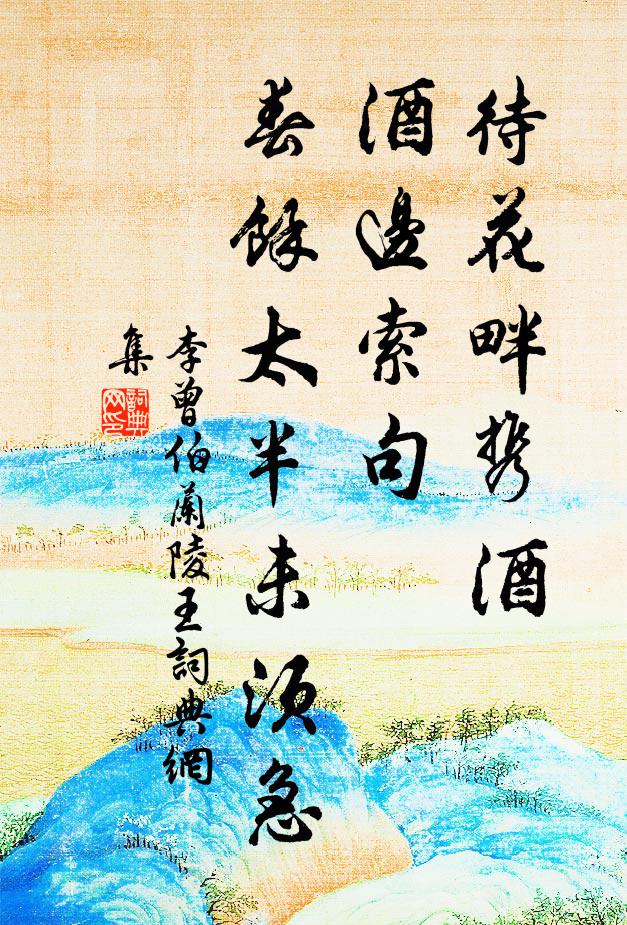 待花畔携酒
酒邊索句
春餘太半未須急
李曾伯蘭陵王詞典網
集
詞典
网印